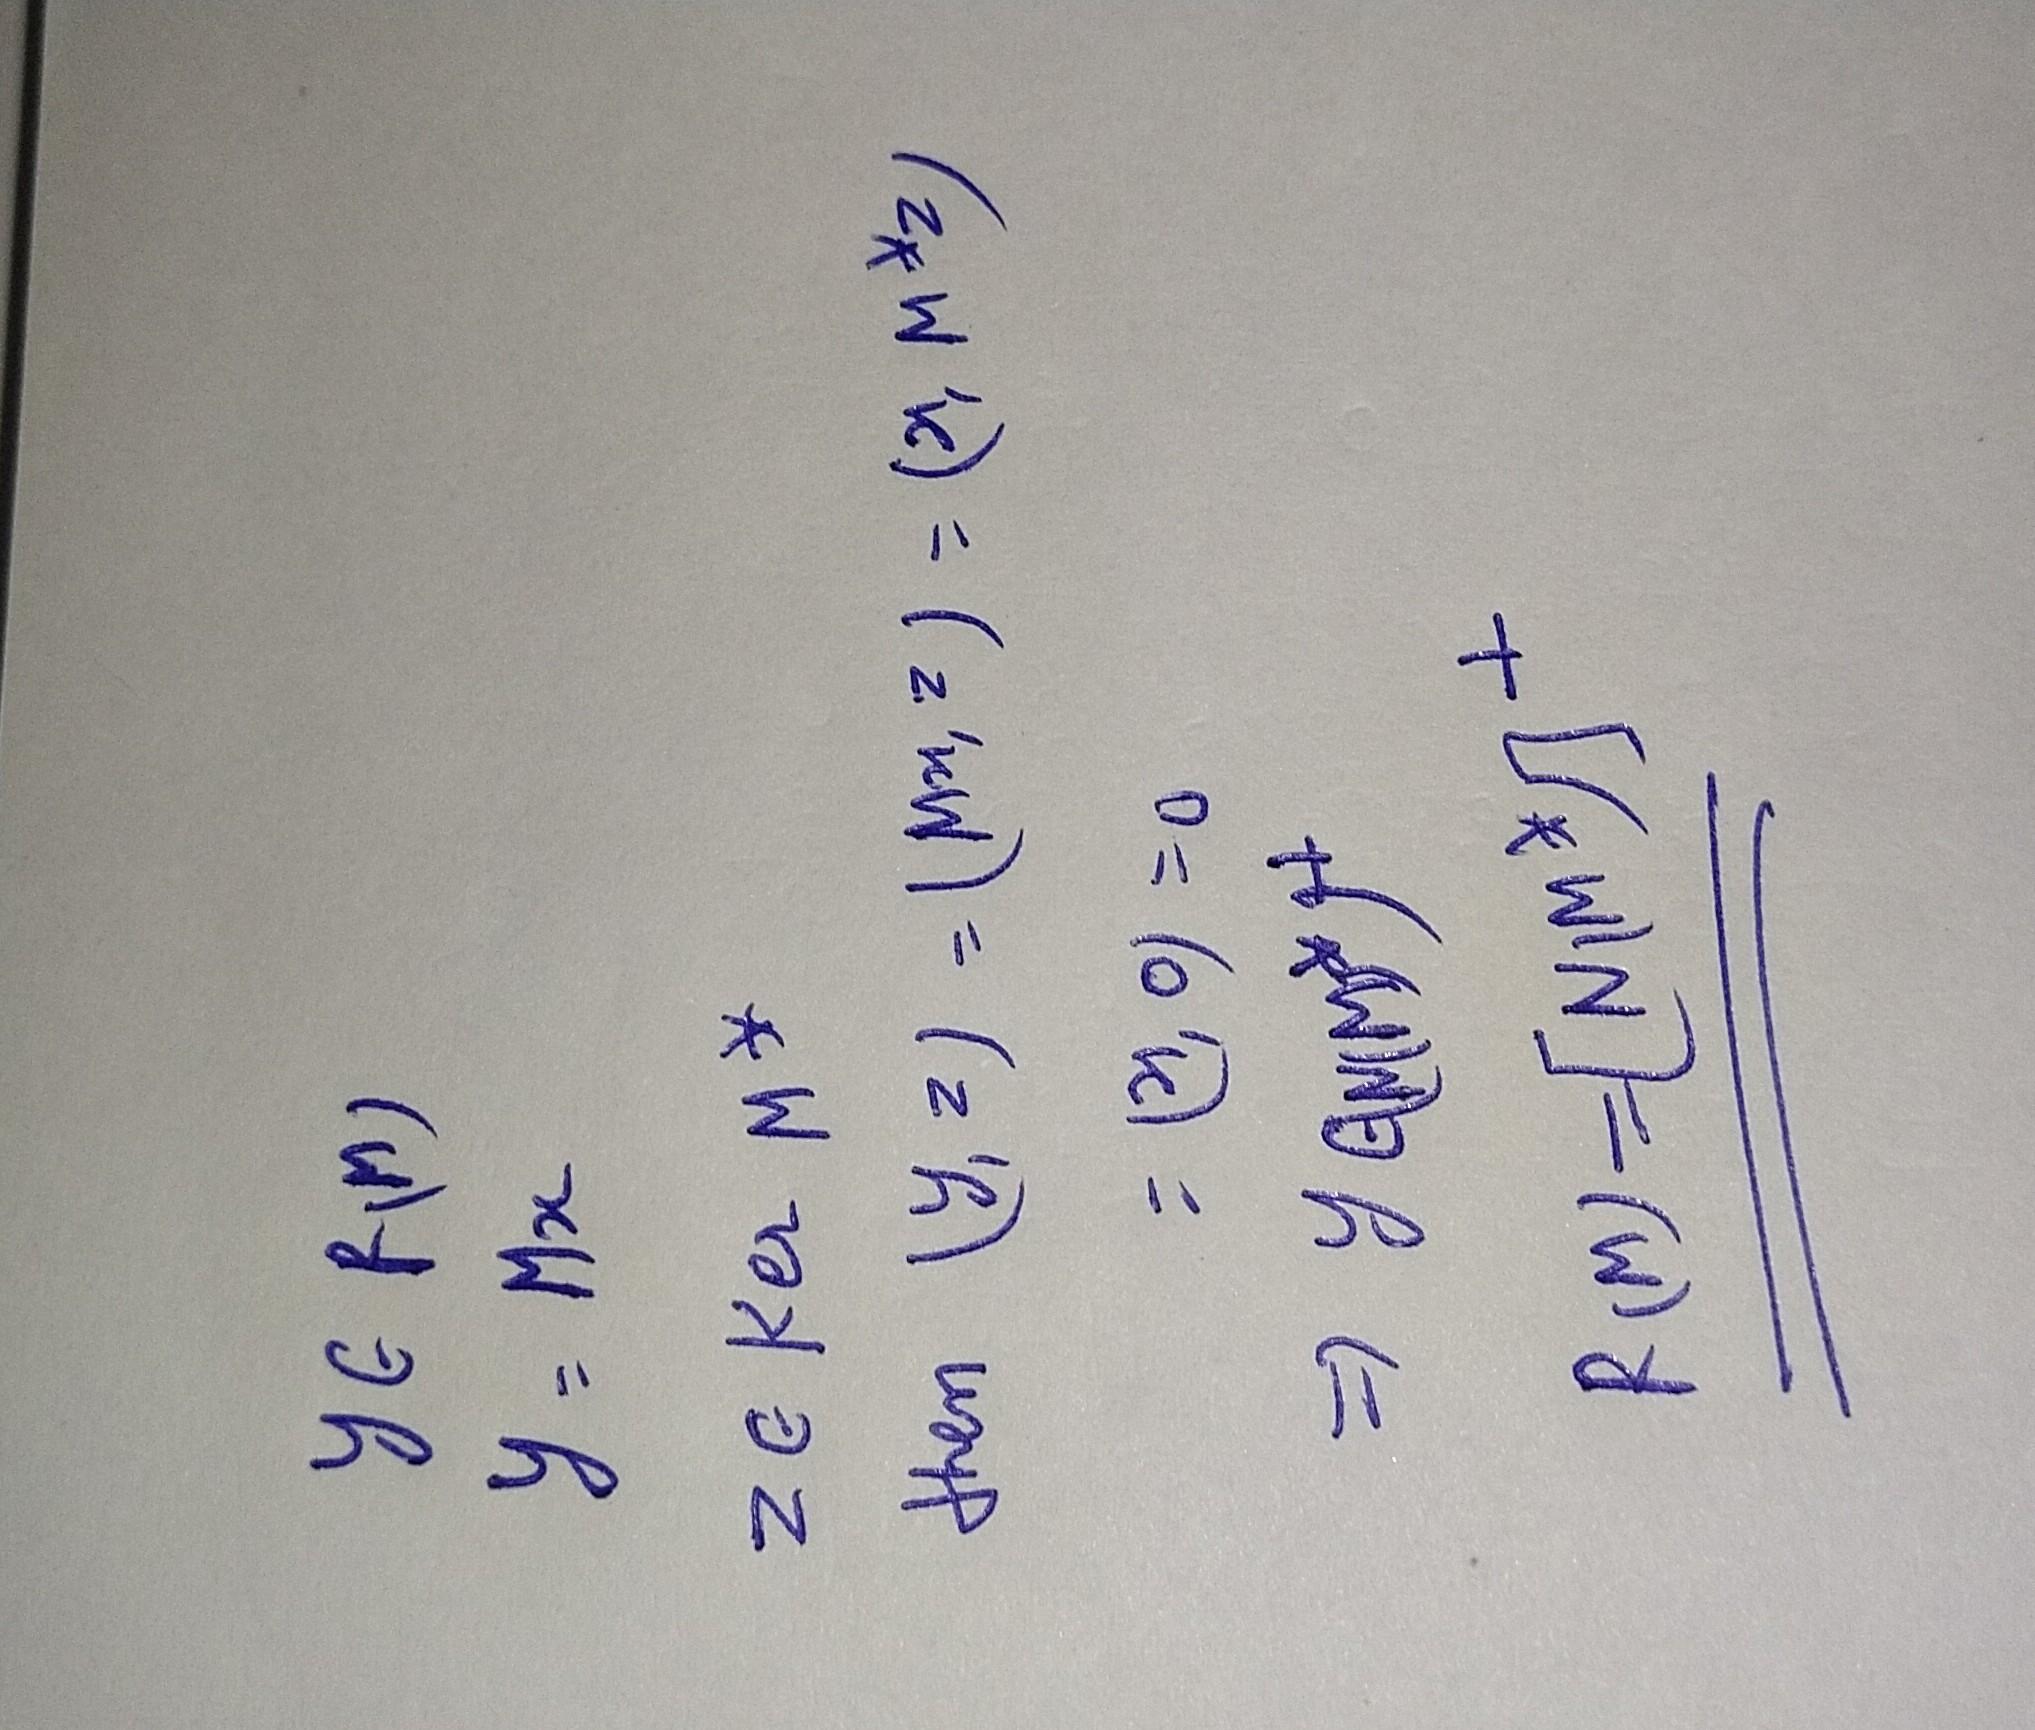 y ∈ R(M)
y = Mx
z ∈ Ker M*
then (y, z) = (Mx, z) = (x, M*z)
= (x, 0) = 0
⇒ y ∈ (N(M)*)⊥
R(M) = [N(M*)]⊥